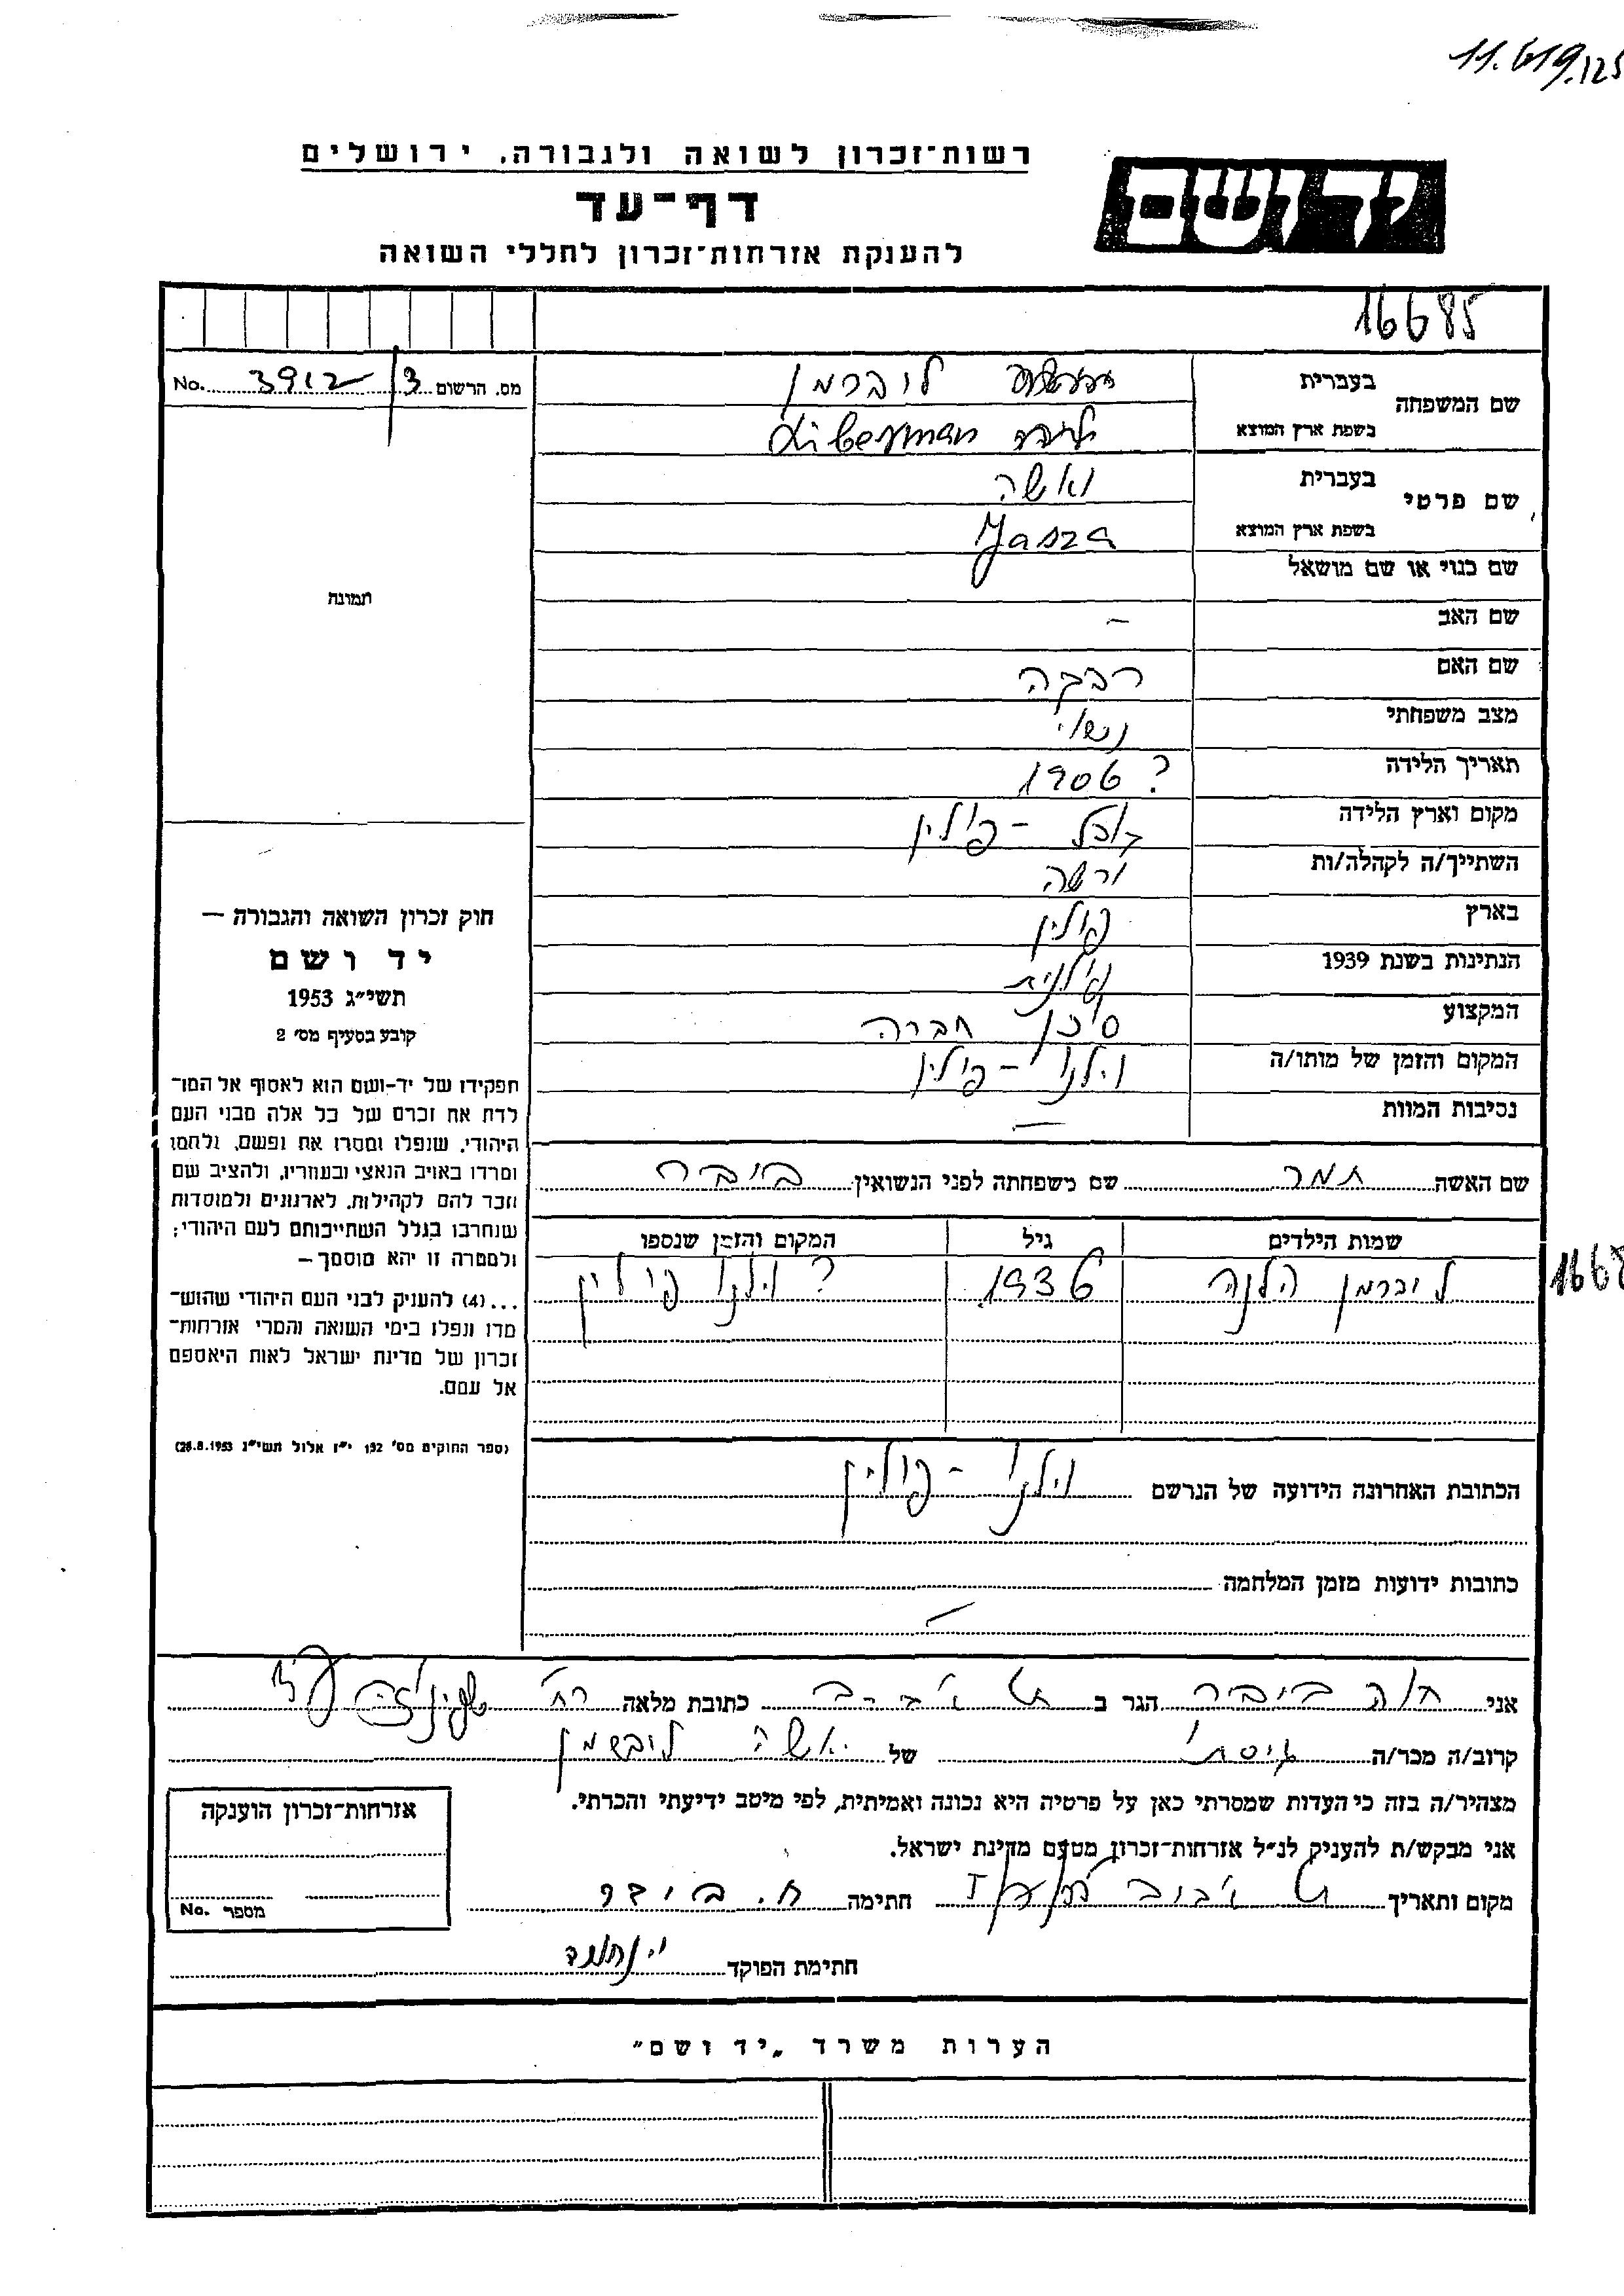 11.619.125
רשות־זכרון לשואה ולגבורה, ירושלים
יד ושם
דף־עד
להענקת אזרחות־זכרון לחללי השואה
16685
No. 3912/3 מס. הרשום
שם המשפחה בעברית ליברמן
בשפת ארץ המוצא Liberman
שם פרטי בעברית יאשה
בשפת ארץ המוצא Jasza
שם כנוי או שם מושאל
שם האב –
שם האם רבקה
מצב משפחתי נשוי
תאריך הלידה 1906 ?
מקום וארץ הלידה – פולין
השתייך/ה לקהלה/ות ורשה
בארץ פולין
הנתינות בשנת 1939 פולנית
המקצוע סוכן חברה
המקום והזמן של מותו/ה וילנו – פולין
נסיבות המוות —
תמונה
חוק זכרון השואה והגבורה —
יד ושם
תשי״ג 1953
קובע בסעיף מס׳ 2
תפקידו של יד-ושם הוא לאסוף אל המו־
לדת את זכרם של כל אלה מבני העם
היהודי, שנפלו ומסרו את נפשם, נלחמו
ומרדו באויב הנאצי ובעוזריו, ולהציב שם
וזכר להם לקהילות, לארגונים ולמוסדות
שנחרבו בגלל השתייכותם לעם היהודי;
ולמטרה זו יהא מוסמך—
...(4) להעניק לבני העם היהודי שהוש־
מדו ונפלו בימי השואה והמרי אזרחות־
זכרון של מדינת ישראל לאות היאספם
אל עמם.
(ספר החוקים מס׳ 132 י״ז אלול תשי״ג 28.8.1953)
שם האשה תמר שם משפחתה לפני הנשואין ביבר
שמות הילדים גיל המקום והזמן שנספו
ליברמן הלנה 1936 וילנו פולין ?
1668
הכתובת האחרונה הידועה של הנרשם וילנו – פולין
כתובות ידועות מזמן המלחמה
—
אני חוה ביבר הגר ב ת״א כתובת מלאה רח׳
קרוב/ה מכר/ה גיסתו של יאשה ליברמן
מצהיר/ה בזה כי העדות שמסרתי כאן על פרטיה היא נכונה ואמיתית, לפי מיטב ידיעתי והכרתי.
אני מבקש/ת להעניק לנ״ל אזרחות־זכרון מטעם מדינת ישראל.
מקום ותאריך חתימה ח. ביבר
חתימת הפוקד
אזרחות־זכרון הוענקה
מספר No.
הערות משרד „יד ושם״